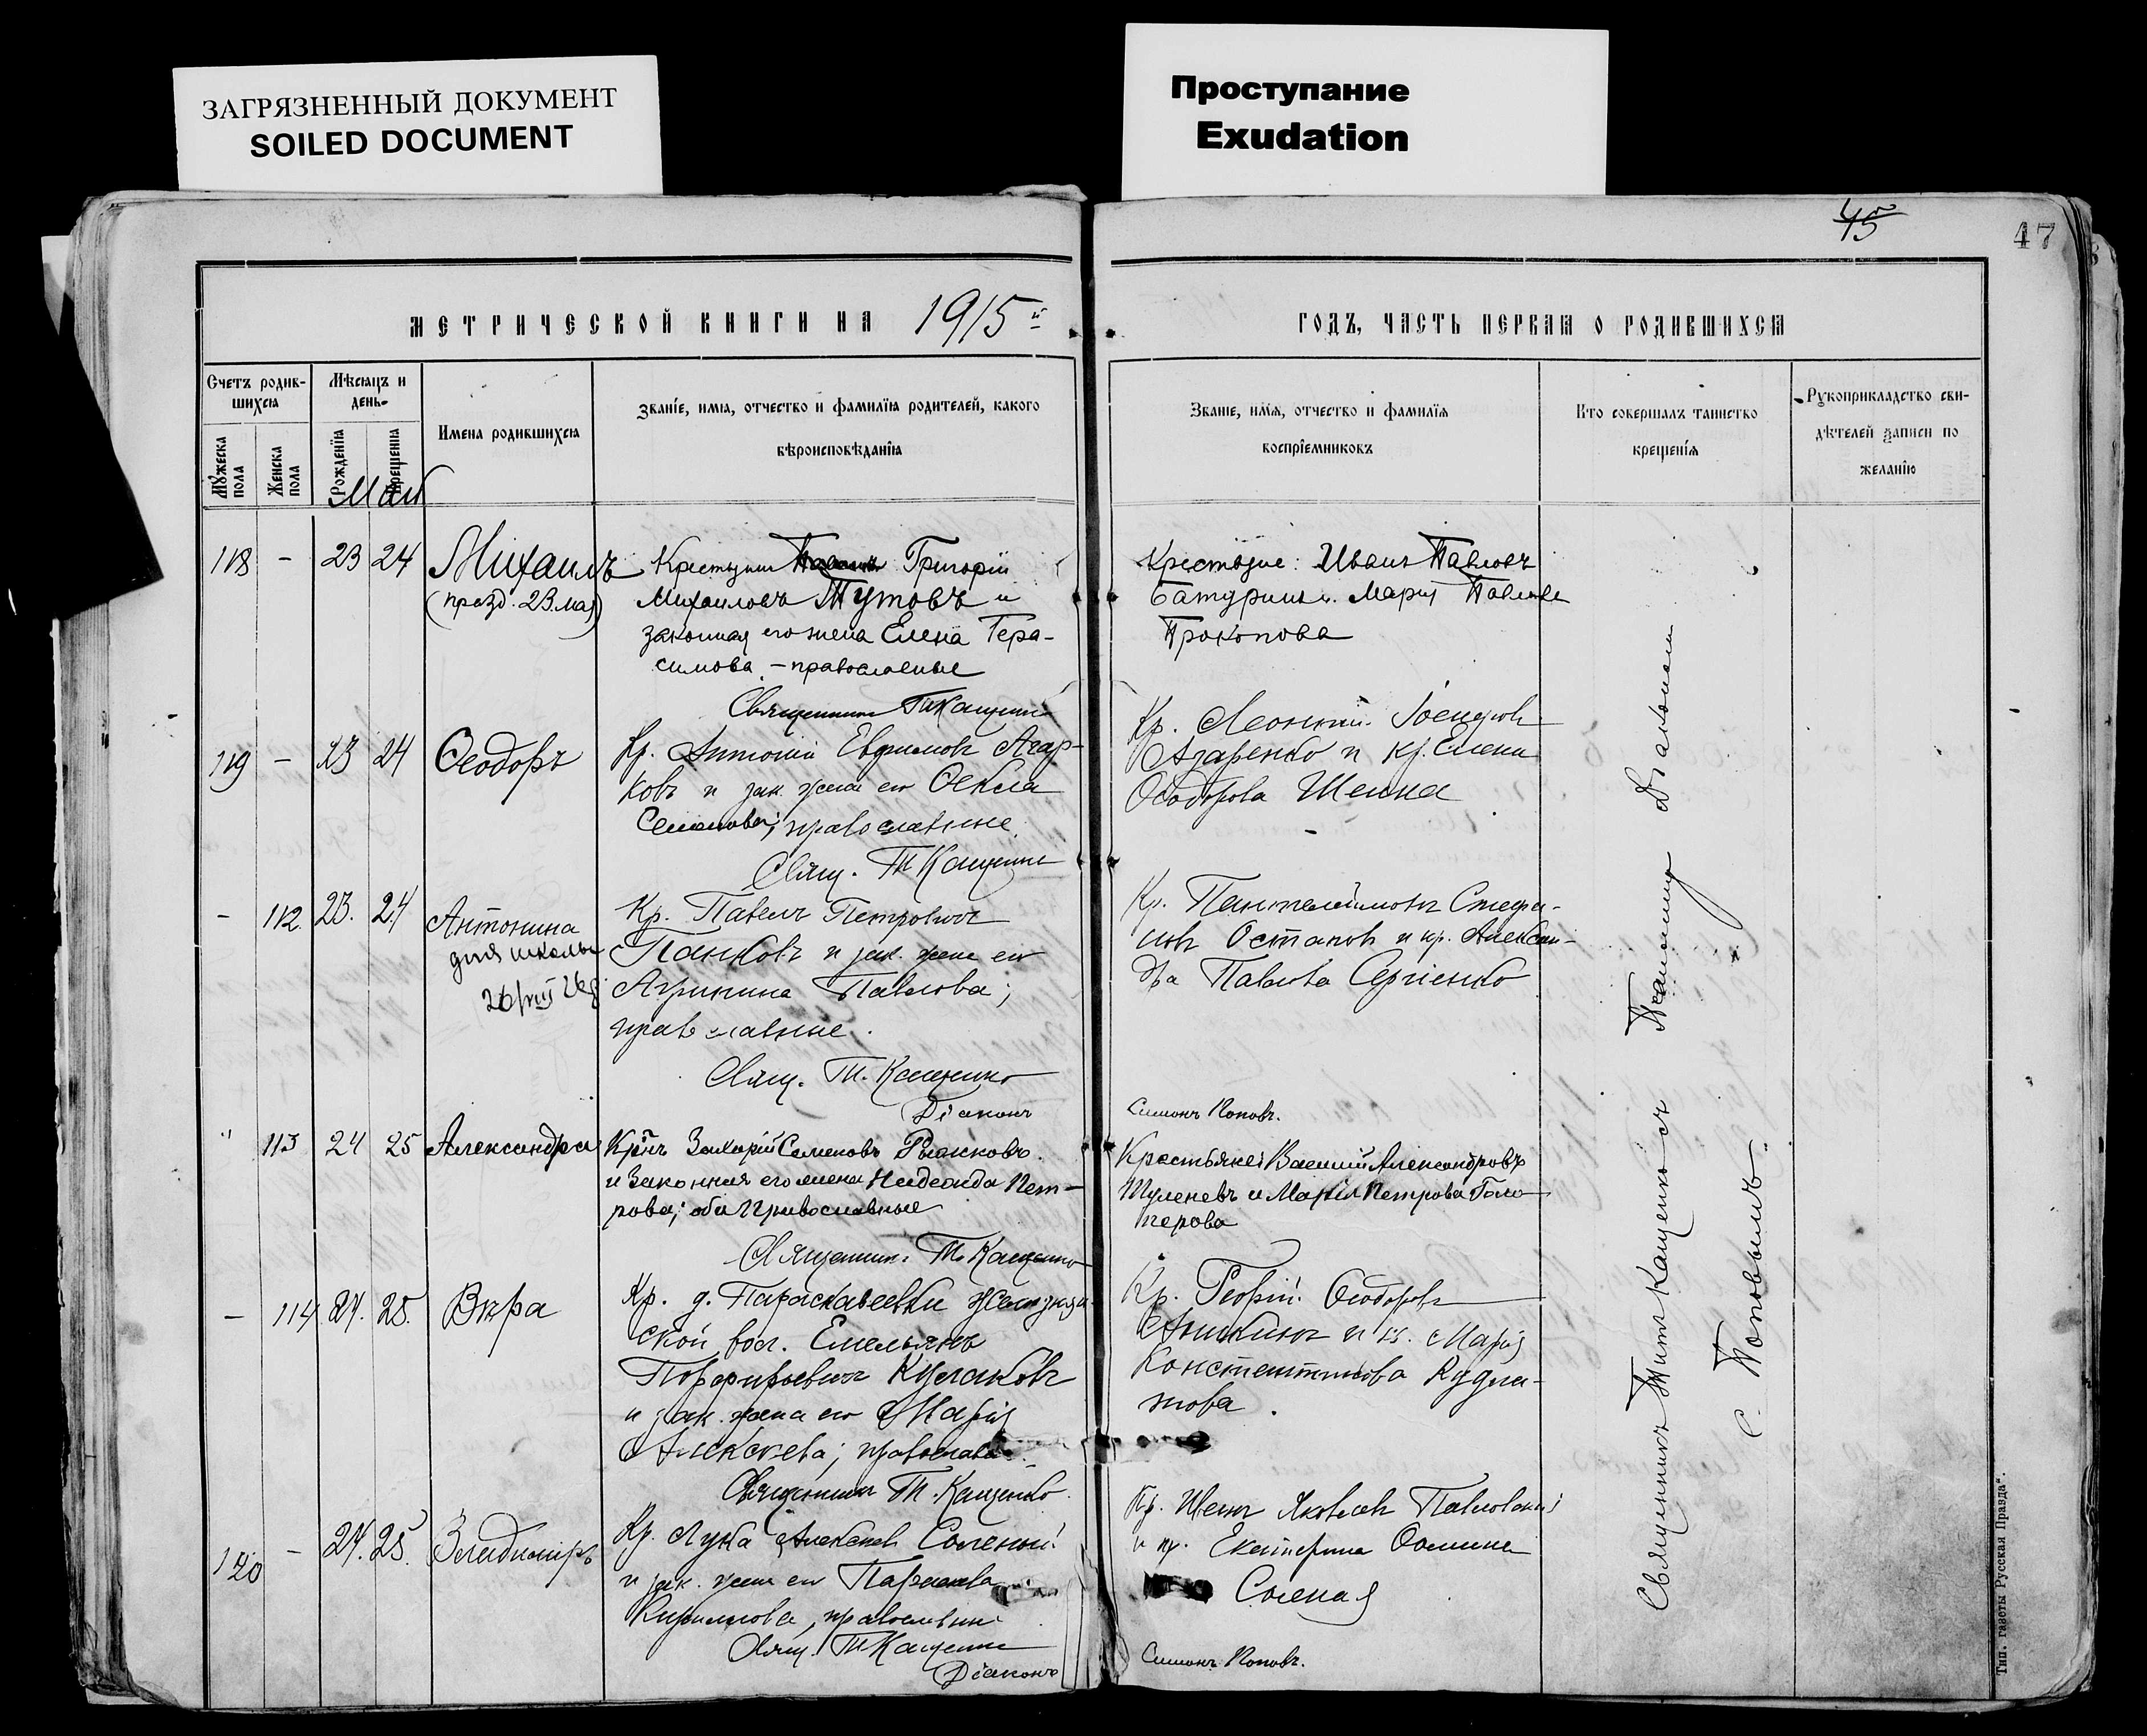 ЗАГРЯЗНЕННЫЙ ДОКУМЕНТ
SOILED DOCUMENT
Проступание
Exudation
45
47
МЕТРИЧЕСКОЙ КНИГИ НА 1915й
Счетъ родившихся
Мѣсяцъ и день.
Мужеска пола
Женска пола
Рожденія
Крещенія
Имена родившихся
Званіе, имя, отчество и фамилія родителей, какого
вѣроисповѣданія
Май
118 – 23 24 Михаилъ
(празд. 23 мая)
Крестьянинъ Григорій
Михаиловъ Тутовъ и
законная его жена Елена Гера-
симова – православные
Священникъ Т Кащенко
119 – 23 24 Ѳеодоръ
Кр. Антоній Евфимовъ Агар-
ковъ и зак. жена его Ѳекла
Семенова; православные.
Свящ. Т Кащенко
– 112 23. 24 Антонина
для школы
Кр. Павелъ Петровичъ
Панковъ и зак. жена его
Агрипина Павлова;
православные.
Свящ. Т. Кащенко
Діаконъ
" 113 24 25 Александра
Крнъ Захарій Семеновъ
и законная его жена Петрова; оба Православные
Священникъ Т. Кащенко
– 114 24. 25. Вѣра
Кр. д. Параскавеевки
ской вол. Емельянъ
Порфирьевичъ Кулаковъ
и зак. жена его Марія
Алексѣева; православн.
Священникъ Т. Кащенко.
120 – 24. 25. Владиміръ
Кр. Лука Алексѣевъ Соленый
и зак. жена его Параскева
Кириллова, православные
Свящ. Т Кащенко
Діаконъ
ГОДЪ, ЧАСТЬ ПЕРВАЯ О РОДИВШИХСЯ
Званіе, имя, отчество и фамилія
воспріемниковъ
Кто совершалъ таинство
крещенія
Рукоприкладство сви-
дѣтелей записи по
желанію
Крестьяне: Иванъ Павловъ
Батуринъ и Марія Павлова
Прокопова
Кр. Леонтій Іосифовъ
Азаренко и кр. Елена
Ѳеодорова Шейка
Кр. Пантелеймонъ Стефа-
новъ Остаповъ и кр. Алексан-
дра Павлова Сергіенко
Симонъ Поповъ.
Крестьяне: Василій Александровъ
Туленевъ и Марія Петрова
Кр. Георгій Ѳеодоровъ
Аникинъ и кр. Марія
Константинова
Кр. Иванъ Яковлевъ
и кр. Екатерина Ѳомина
Соленая
Симонъ Поповъ.
Священникъ Титъ Кащенко съ Діакономъ
С. Поповымъ.
Тип. газеты Русская Правда".